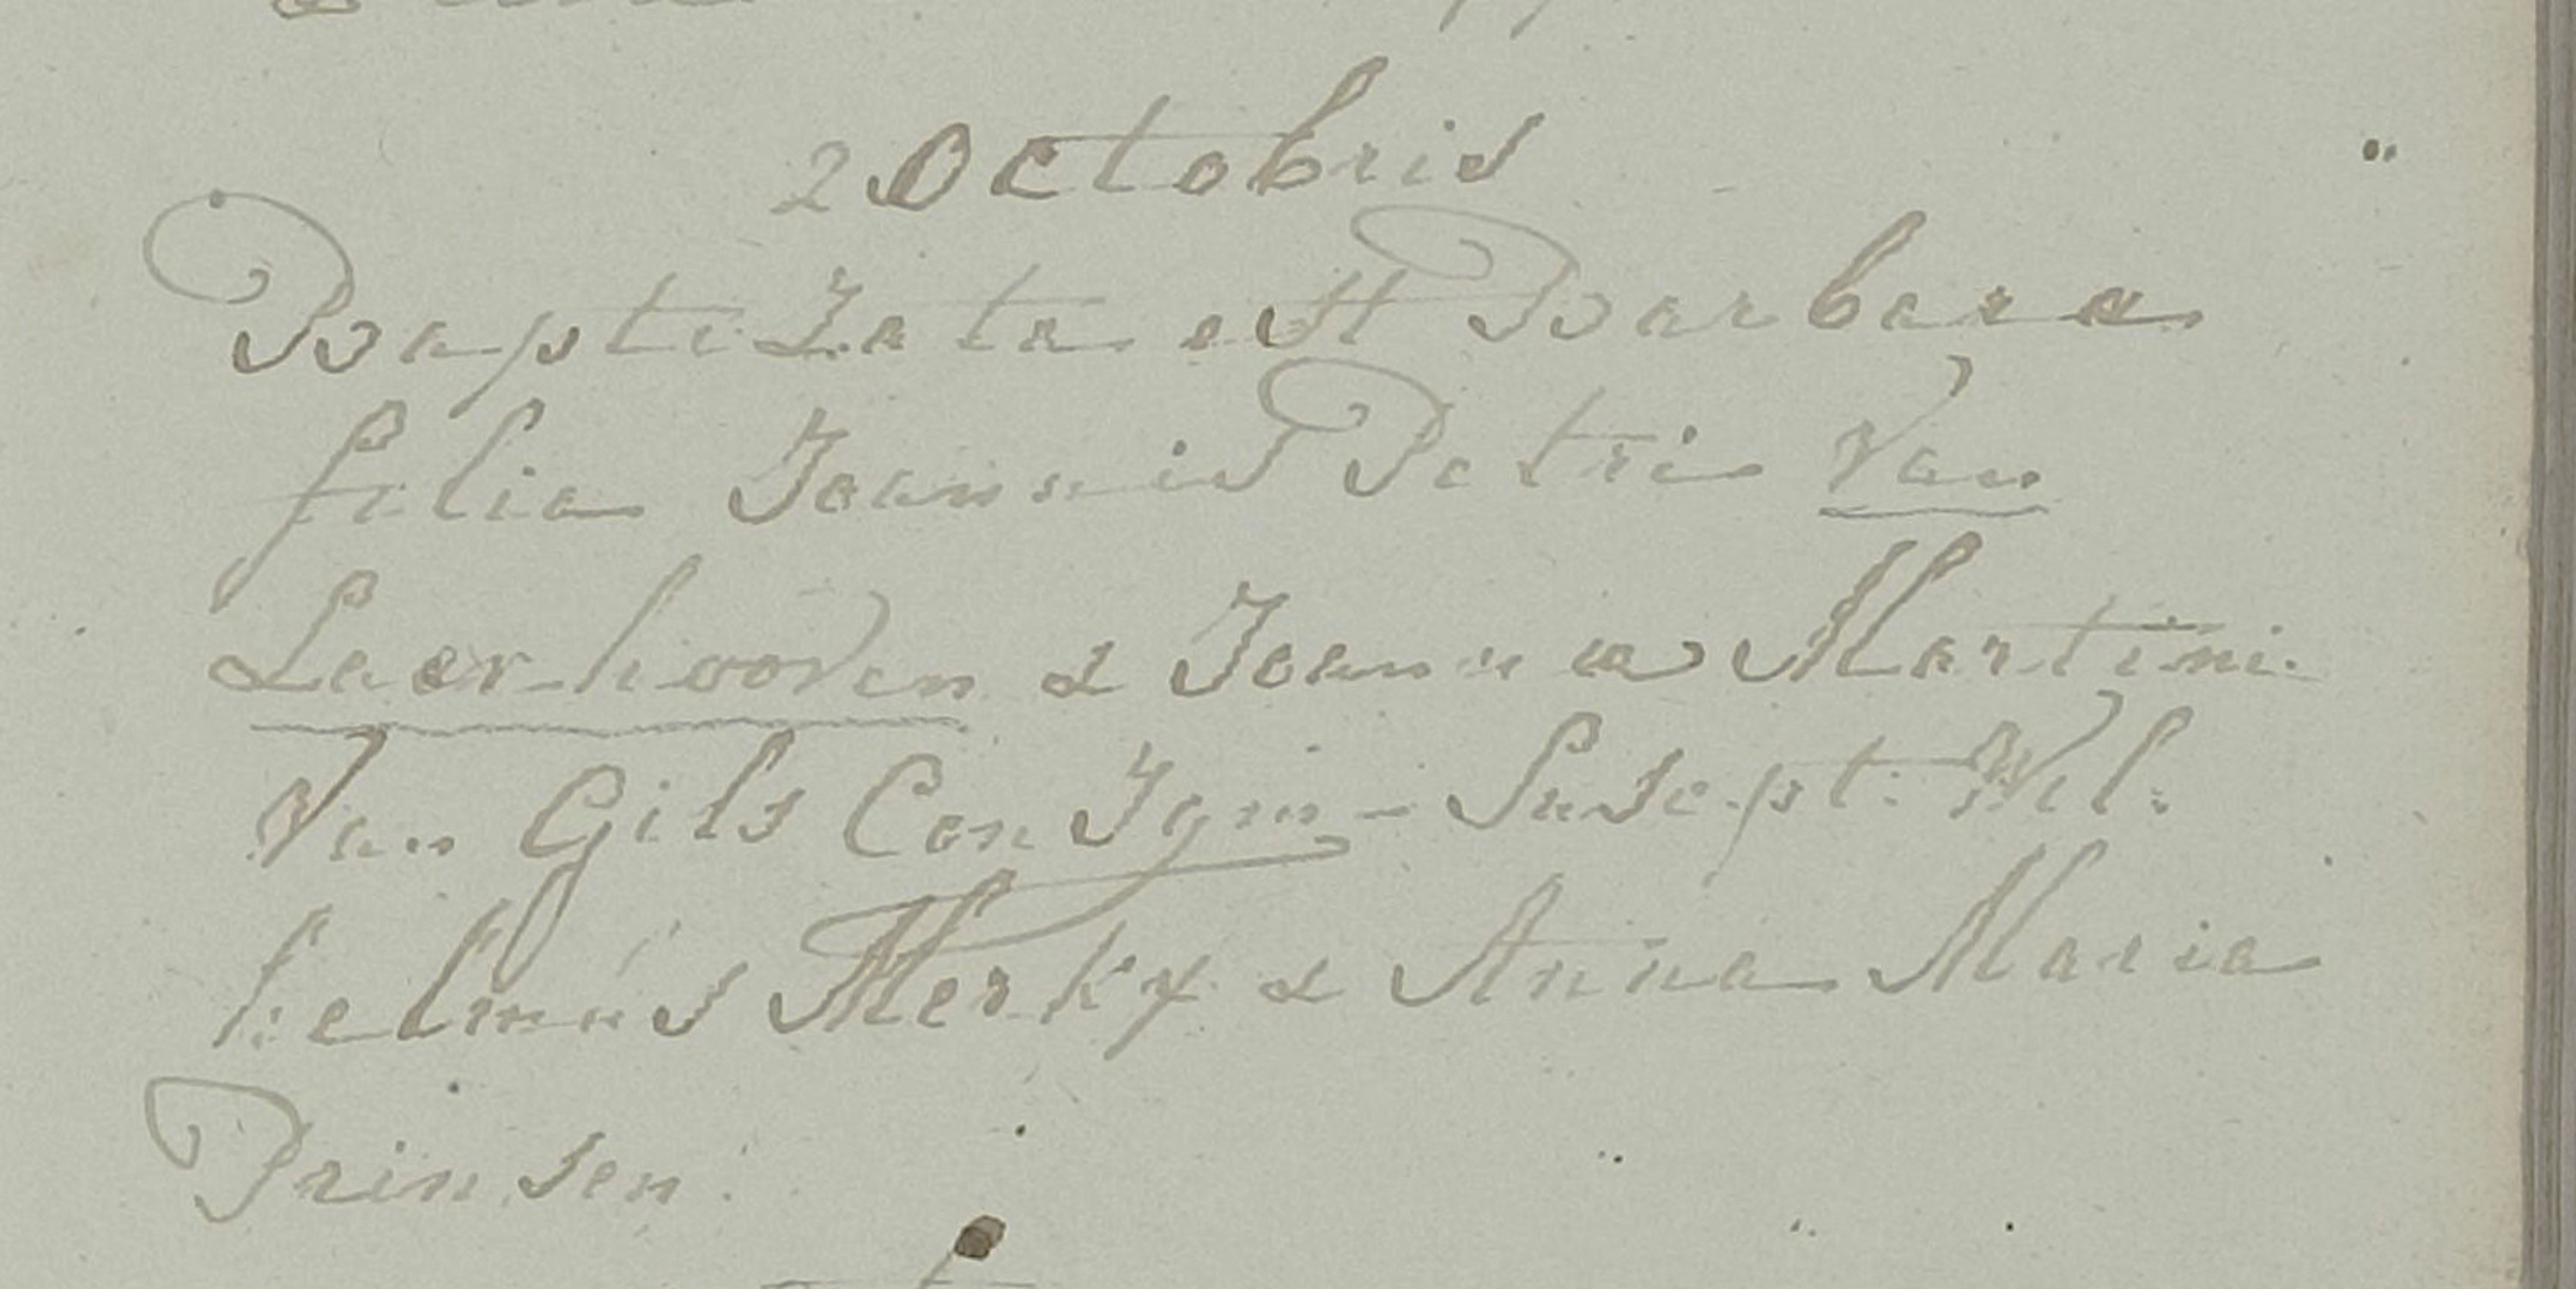 2 Octobris
Baptizata est Barbara
filia Joannis Petri Van
Laerhooven & Joanna Martini
Van Gils Conjgm - Suscept: Wil:
helmus Merkx & Anna Maria
Prinsen.